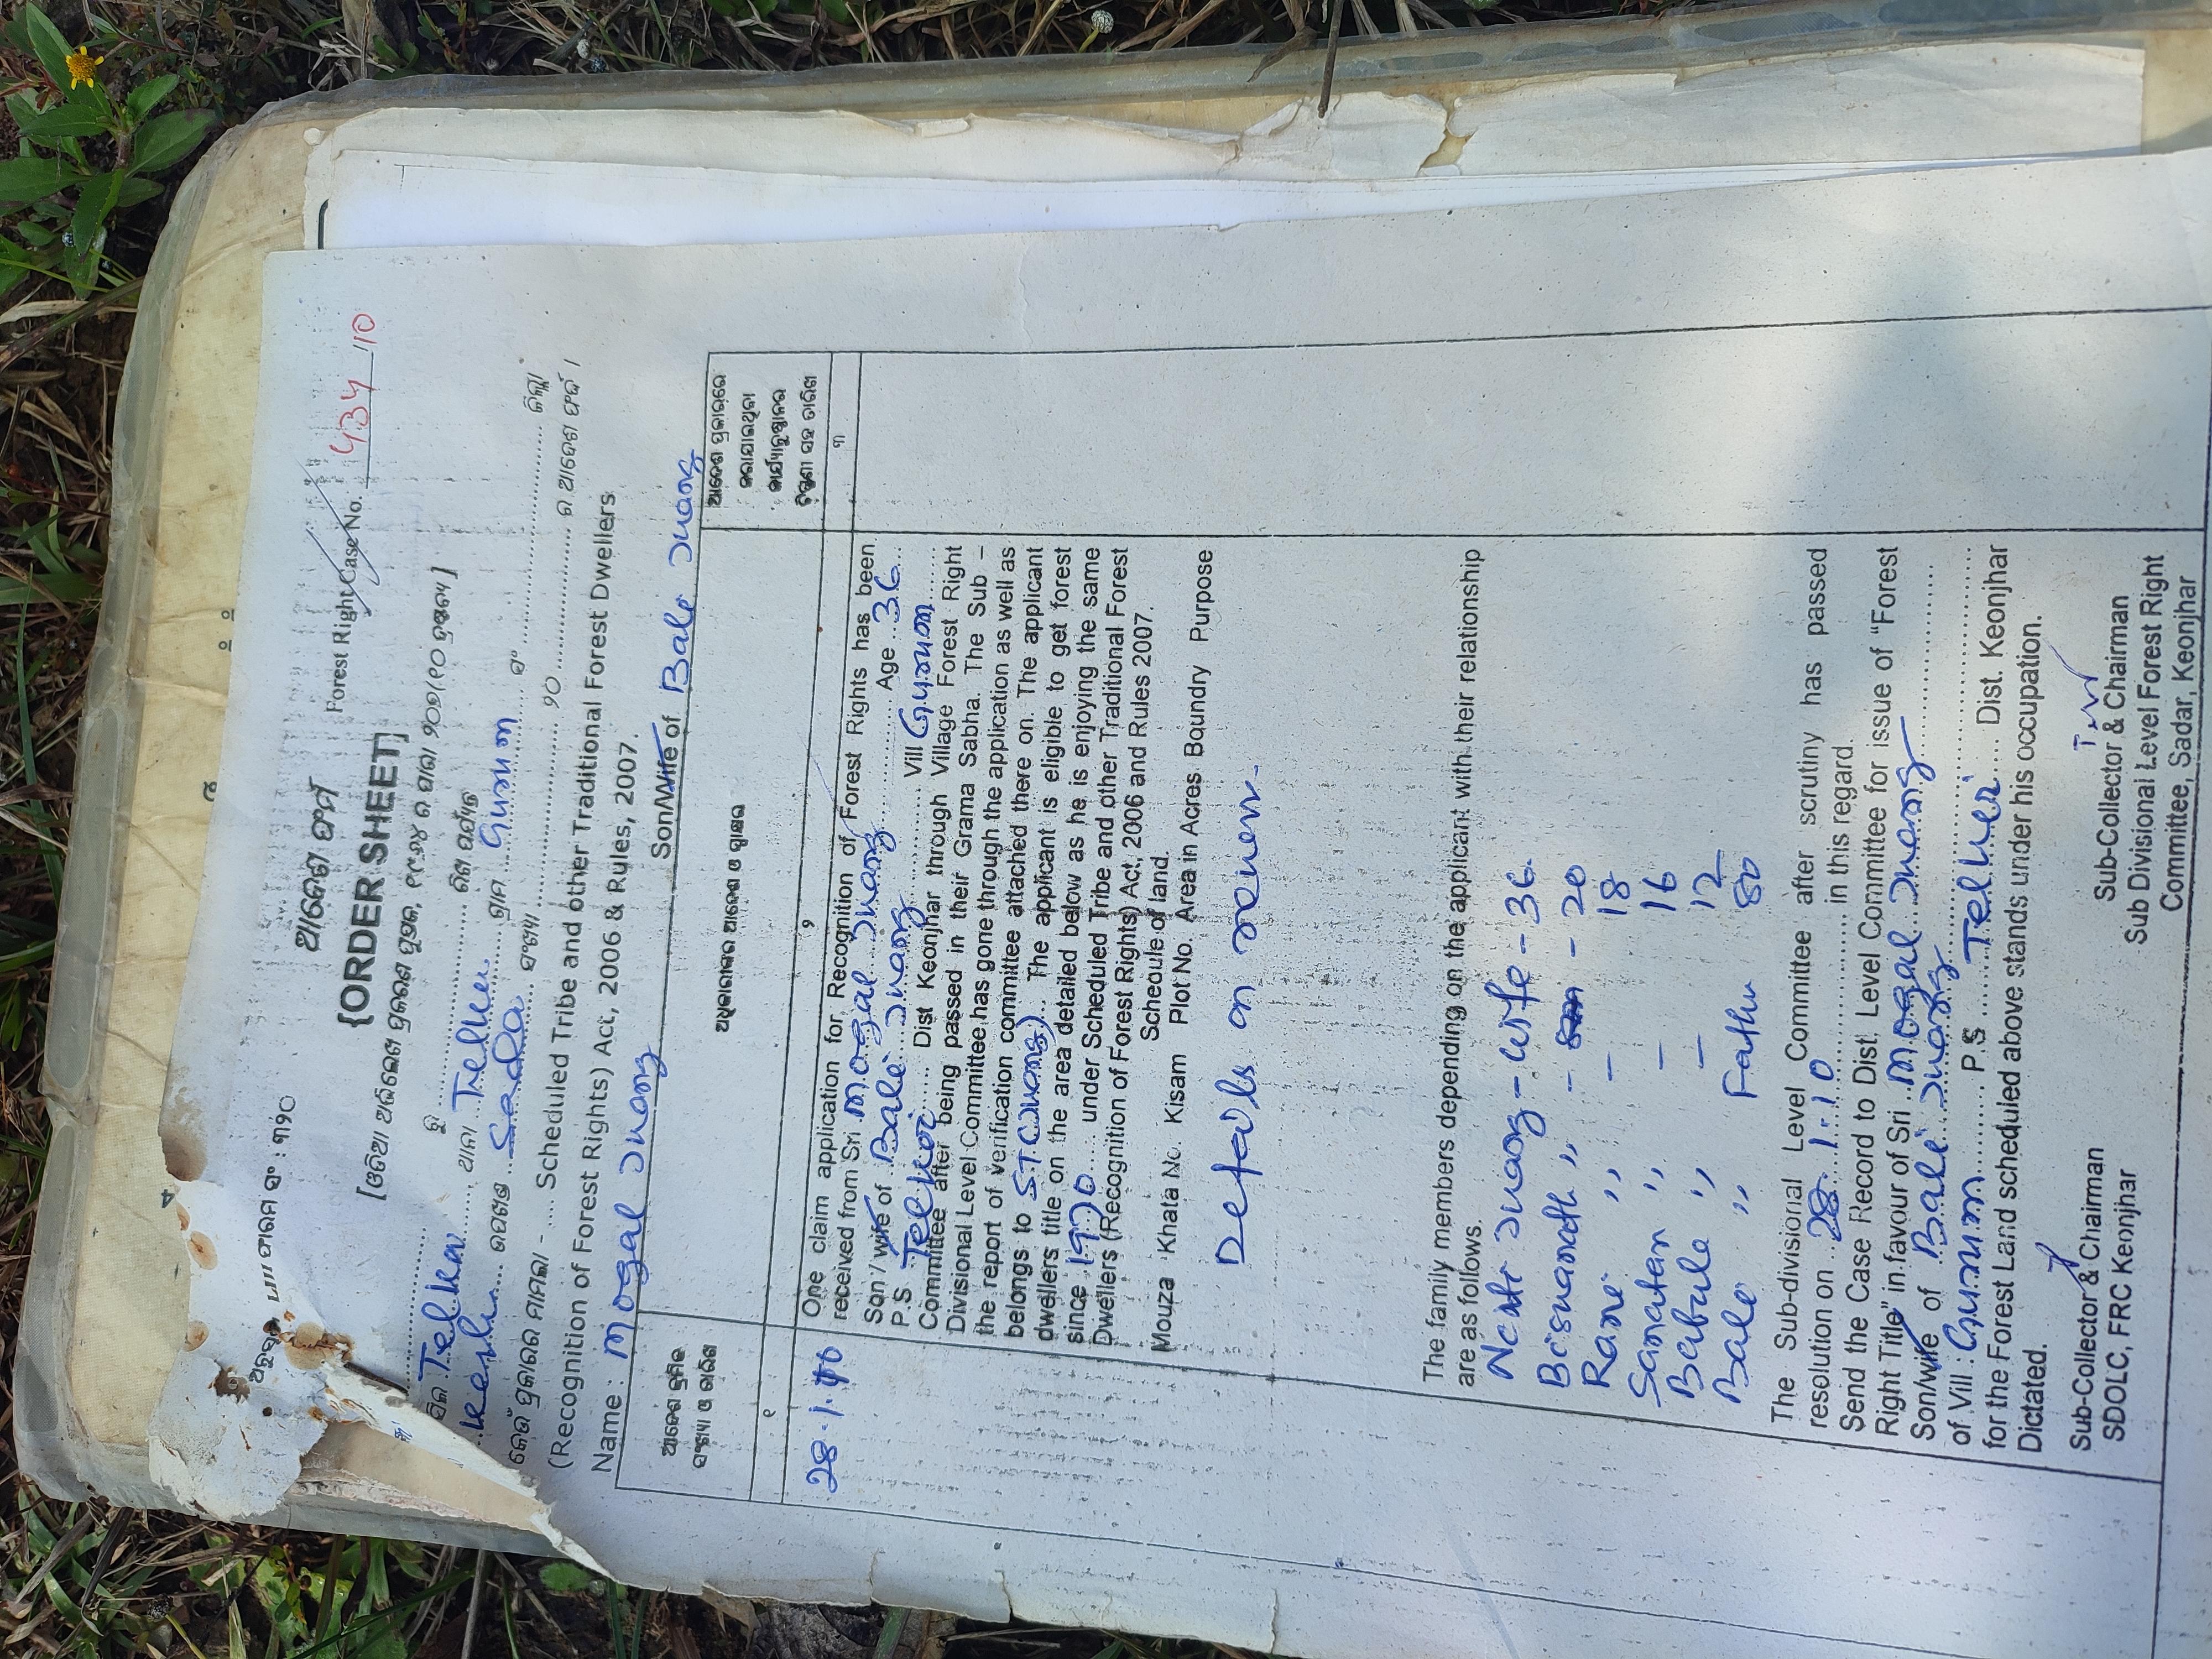 ଅନୁସୂଚୀ ଫାରମ ନଂ : ୩୨୦
ଆଦେଶ ଫର୍ଦ୍ଦ
{ORDER SHEET}
Forest Right Case No. 434/10
ଠାରୁ ........ ତାରିଖ ପର୍ଯ୍ୟନ୍ତ
Telkoi ..... ଥାନା .. Telkoi
keonjhar ..... ତହସିଲ .. Sadar ..... ଗ୍ରାମ
କେଉଁ ପ୍ରକାରର ମାମଲା - .... Scheduled Tribe and other Traditional Forest Dwellers
(Recognition of Forest Rights) Act, 2006 & Rules, 2007.
Name : Mogal Juang Son/Wife of Bale Juang
ଆଦେଶ କ୍ରମିକ ସଂଖ୍ୟା ଓ ତାରିଖ
ଅଧିକାରୀଙ୍କ ଆଦେଶ ଓ ସ୍ୱାକ୍ଷର
୧ ୨ ୩
28.1.10
One claim application for Recognition of Forest Rights has been
received from Sri Mogal Juang Age 36
Son / wife of Bale Juang Vill
P.S. Telkoi Dist Keonjhar through Village Forest Right
Committee after being passed in their Grama Sabha. The Sub –
Divisional Level Committee has gone through the application as well as
the report of verification committee attached there on. The applicant
belongs to S.T (Juang) The applicant is eligible to get forest
dwellers title on the area detailed below as he is enjoying the same
since 1970 under Scheduled Tribe and other Traditional Forest
Dwellers (Recognition of Forest Rights) Act, 2006 and Rules 2007.
Schedule of land.
Mouza Khata No. Kisam Plot No. Area in Acres Boundry Purpose
Details on
The family members depending on the applicant with their relationship
are as follows.
Juang - wife - 36
Bisnunath " - son - 20
Rane " - 18
Sanatan " - 16
Babule " - 12
Bale " Father 80
The Sub-divisional Level Committee after scrutiny has passed
resolution on 28.1.10 in this regard.
Send the Case Record to Dist. Level Committee for issue of "Forest
Right Title" in favour of Sri Mogal Juang
Son/wife of Bale Juang
of Vill : P.S Telkoi Dist. Keonjhar
for the Forest Land scheduled above stands under his occupation.
Dictated.
Sub-Collector & Chairman
SDOLC, FRC Keonjhar
Sub-Collector & Chairman
Sub Divisional Level Forest Right
Committee, Sadar, Keonjhar